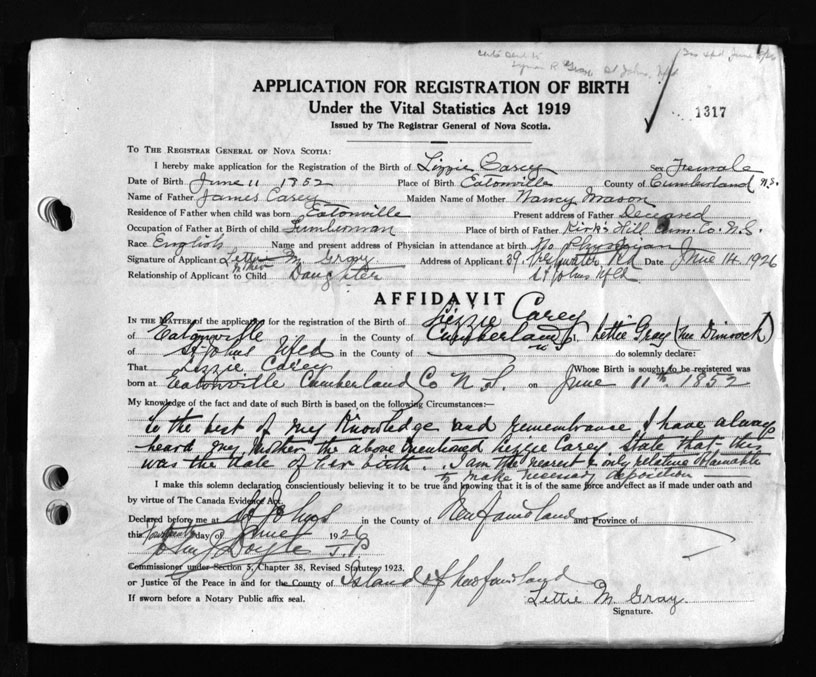 St Johns, Nfd
APPLICATION FOR REGISTRATION OF BIRTH
Under the Vital Statistics Act 1919
Issued by The Registrar General of Nova Scotia.
1317
TO THE REGISTRAR GENERAL OF NOVA SCOTIA:
I hereby make application for the Registration of the Birth of Lizzie Carey Sex Female
Date of Birth June 11 1852 Place of Birth Eatonville County of Cumberland N.S.
Name of Father James Carey Maiden Name of Mother Nancy Mason
Residence of Father when child was born Eatonville Present address of Father Deceased
Occupation of Father at Birth of child Lumberman Place of birth of Father Kirk's Hill Cum. Co. N.S.
Race English Name and present address of Physician in attendance at birth No Physician
Signature of Applicant Lettie M Gray Address of Applicant 39 Freshwater Rd Date June 14 1926
Relationship of Applicant to Child Daughter St Johns Nfld
AFFIDAVIT
IN THE MATTER of the application for the registration of the Birth of Lizzie Carey
of Eatonville in the County of Cumberland N S I. Lettie Gray (nee Dimock)
of St Johns Nfld in the County of do solemnly declare:
That Lizzie Carey (Whose Birth is sought to be registered was
born at Eatonville Cumberland Co N.S. on June 11th 1852
My knowledge of the fact and date of such Birth is based on the following Circumstances:—
to the best of my knowledge and remembrance I have always
heard my mother the above mentioned Lizzie Carey. State that this
was the date of her birth. I am the nearest & only relative obtainable
to make necessary deposition
I make this solemn declaration conscientiously believing it to be true and knowing that it is of the same force and effect as if made under oath and
by virtue of The Canada Evidence Act.
Declared before me at St Johns in the County of Newfoundland and Province of
this fourteenth day of June 1926
John J Doyle J.P.
Commissioner under Section 5, Chapter 38, Revised Statutes, 1923.
or Justice of the Peace in and for the County of Island of Newfoundland
If sworn before a Notary Public affix seal.
Lettie M Gray
Signature.